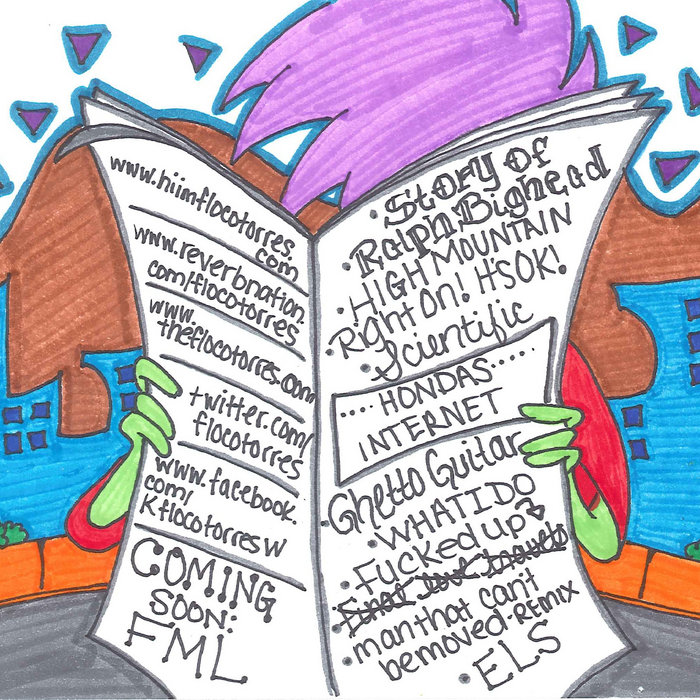 www.hiimflocotorres.
com
www.reverbnation.
com/flocotorres
www.
theflocotorres.com
twitter.com/
flocotorres
www.facebook.
com/
KflocotorresW
COMING
SOON:
FML
• Story of
Ralph Bighead
• HIGH MOUNTAIN
• Right On! It's OK!
• Scientific
.... HONDAS .....
INTERNET
• Ghetto Guitar
• WHAT I DO
• Fucked up
• man that can't
be moved-REMIX
• ELS